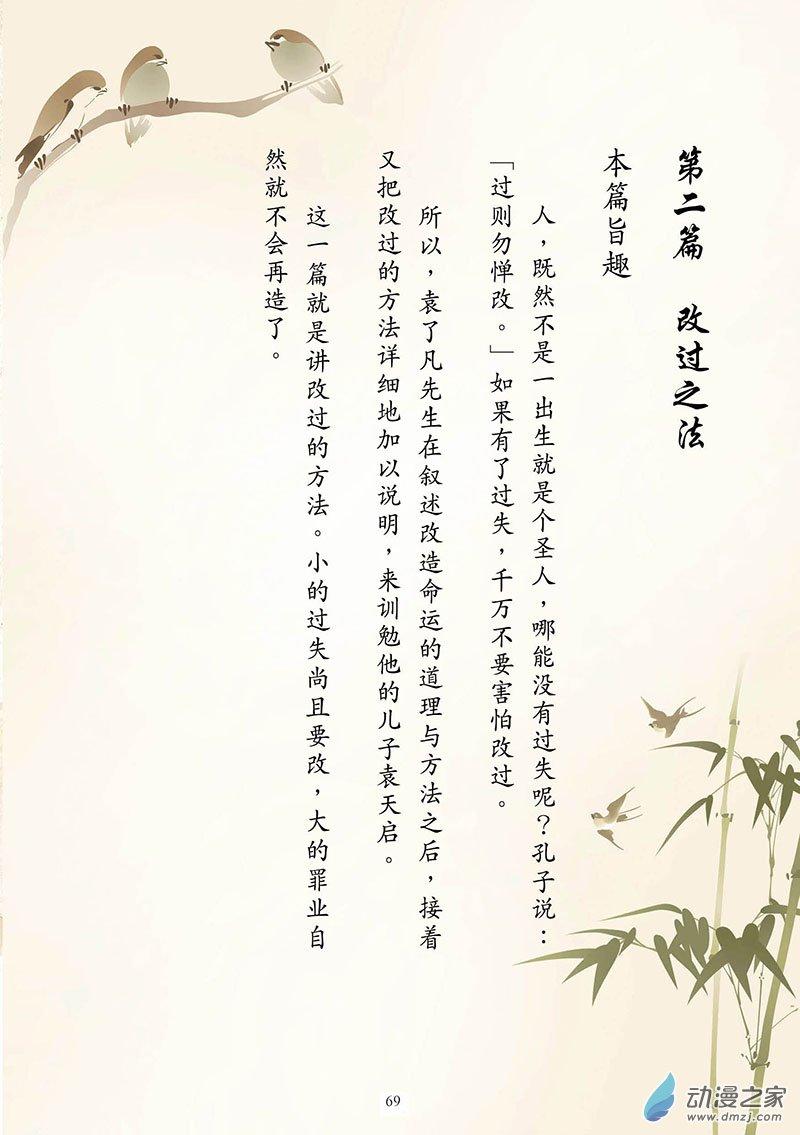 第二篇　改过之法
本篇旨趣
人，既然不是一出生就是个圣人，哪能没有过失呢？孔子说：
「过则勿惮改。」如果有了过失，千万不要害怕改过。
所以，袁了凡先生在叙述改造命运的道理与方法之后，接着
又把改过的方法详细地加以说明，来训勉他的儿子袁天启。
这一篇就是讲改过的方法。小的过失尚且要改，大的罪业自
然就不会再造了。
69
动漫之家
www.dmzj.com